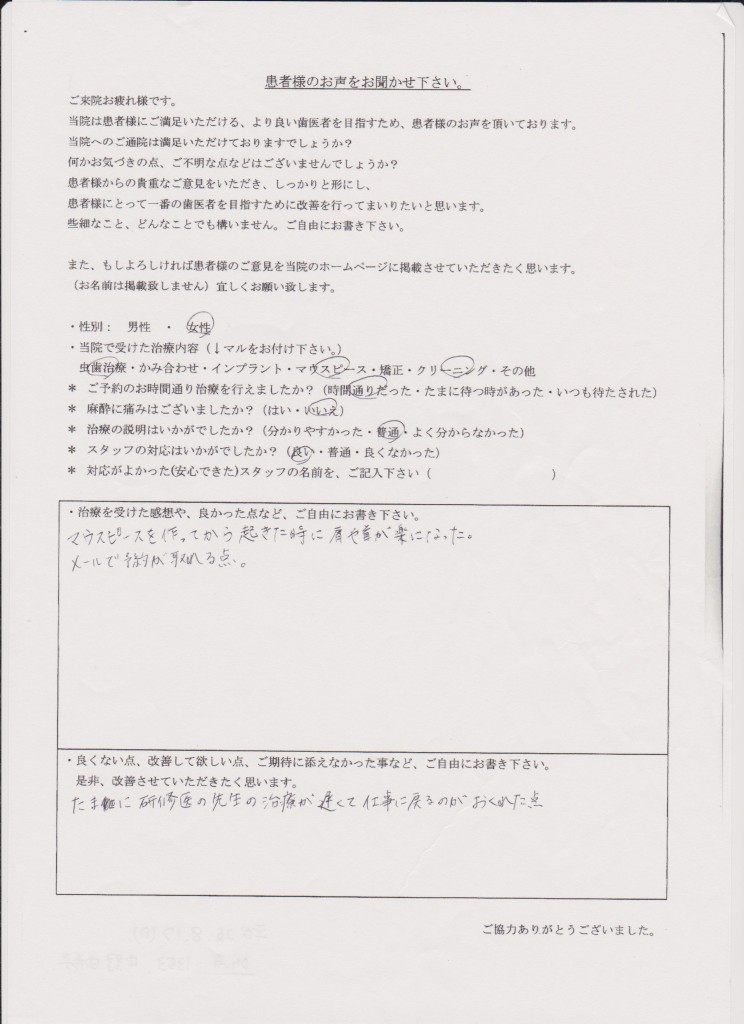 患者様のお声をお聞かせ下さい。
ご来院お疲れ様です。
当院は患者様にご満足いただける、より良い歯医者を目指すため、患者様のお声を頂いております。
当院へのご通院は満足いただけておりますでしょうか？
何かお気づきの点、ご不明な点などはございませんでしょうか？
患者様からの貴重なご意見をいただき、しっかりと形にし、
患者様にとって一番の歯医者を目指すために改善を行ってまいりたいと思います。
些細なこと、どんなことでも構いません。ご自由にお書き下さい。
また、もしよろしければ患者様のご意見を当院のホームページに掲載させていただきたく思います。
（お名前は掲載致しません）宜しくお願い致します。
・性別： 男性 ・ 女性
・当院で受けた治療内容（↓マルをお付け下さい。）
虫歯治療・かみ合わせ・インプラント・マウスピース・矯正・クリーニング・その他
＊ ご予約のお時間通り治療を行えましたか？（時間通りだった・たまに待つ時があった・いつも待たされた）
＊ 麻酔に痛みはございましたか？（はい・いいえ）
＊ 治療の説明はいかがでしたか？（分かりやすかった・普通・よく分からなかった）
＊ スタッフの対応はいかがでしたか？（良い・普通・良くなかった）
＊ 対応がよかった(安心できた)スタッフの名前を、ご記入下さい（ ）
・治療を受けた感想や、良かった点など、ご自由にお書き下さい。
マウスピースを作ってから起きた時に肩や首が楽になった。
メールで予約が取れる点。
・良くない点、改善して欲しい点、ご期待に添えなかった事など、ご自由にお書き下さい。
是非、改善させていただきたく思います。
たまに研修医の先生の治療が遅くて仕事に戻るのがおくれた点
ご協力ありがとうございました。